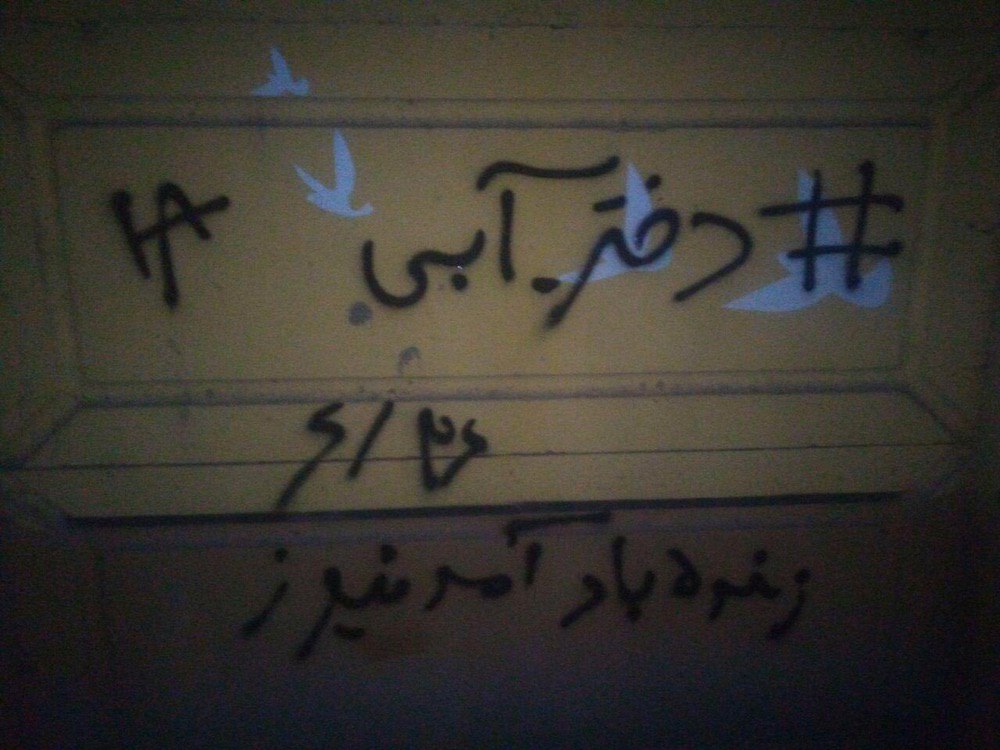 #دختر_آبی HA
زنده باد آمدنیوز